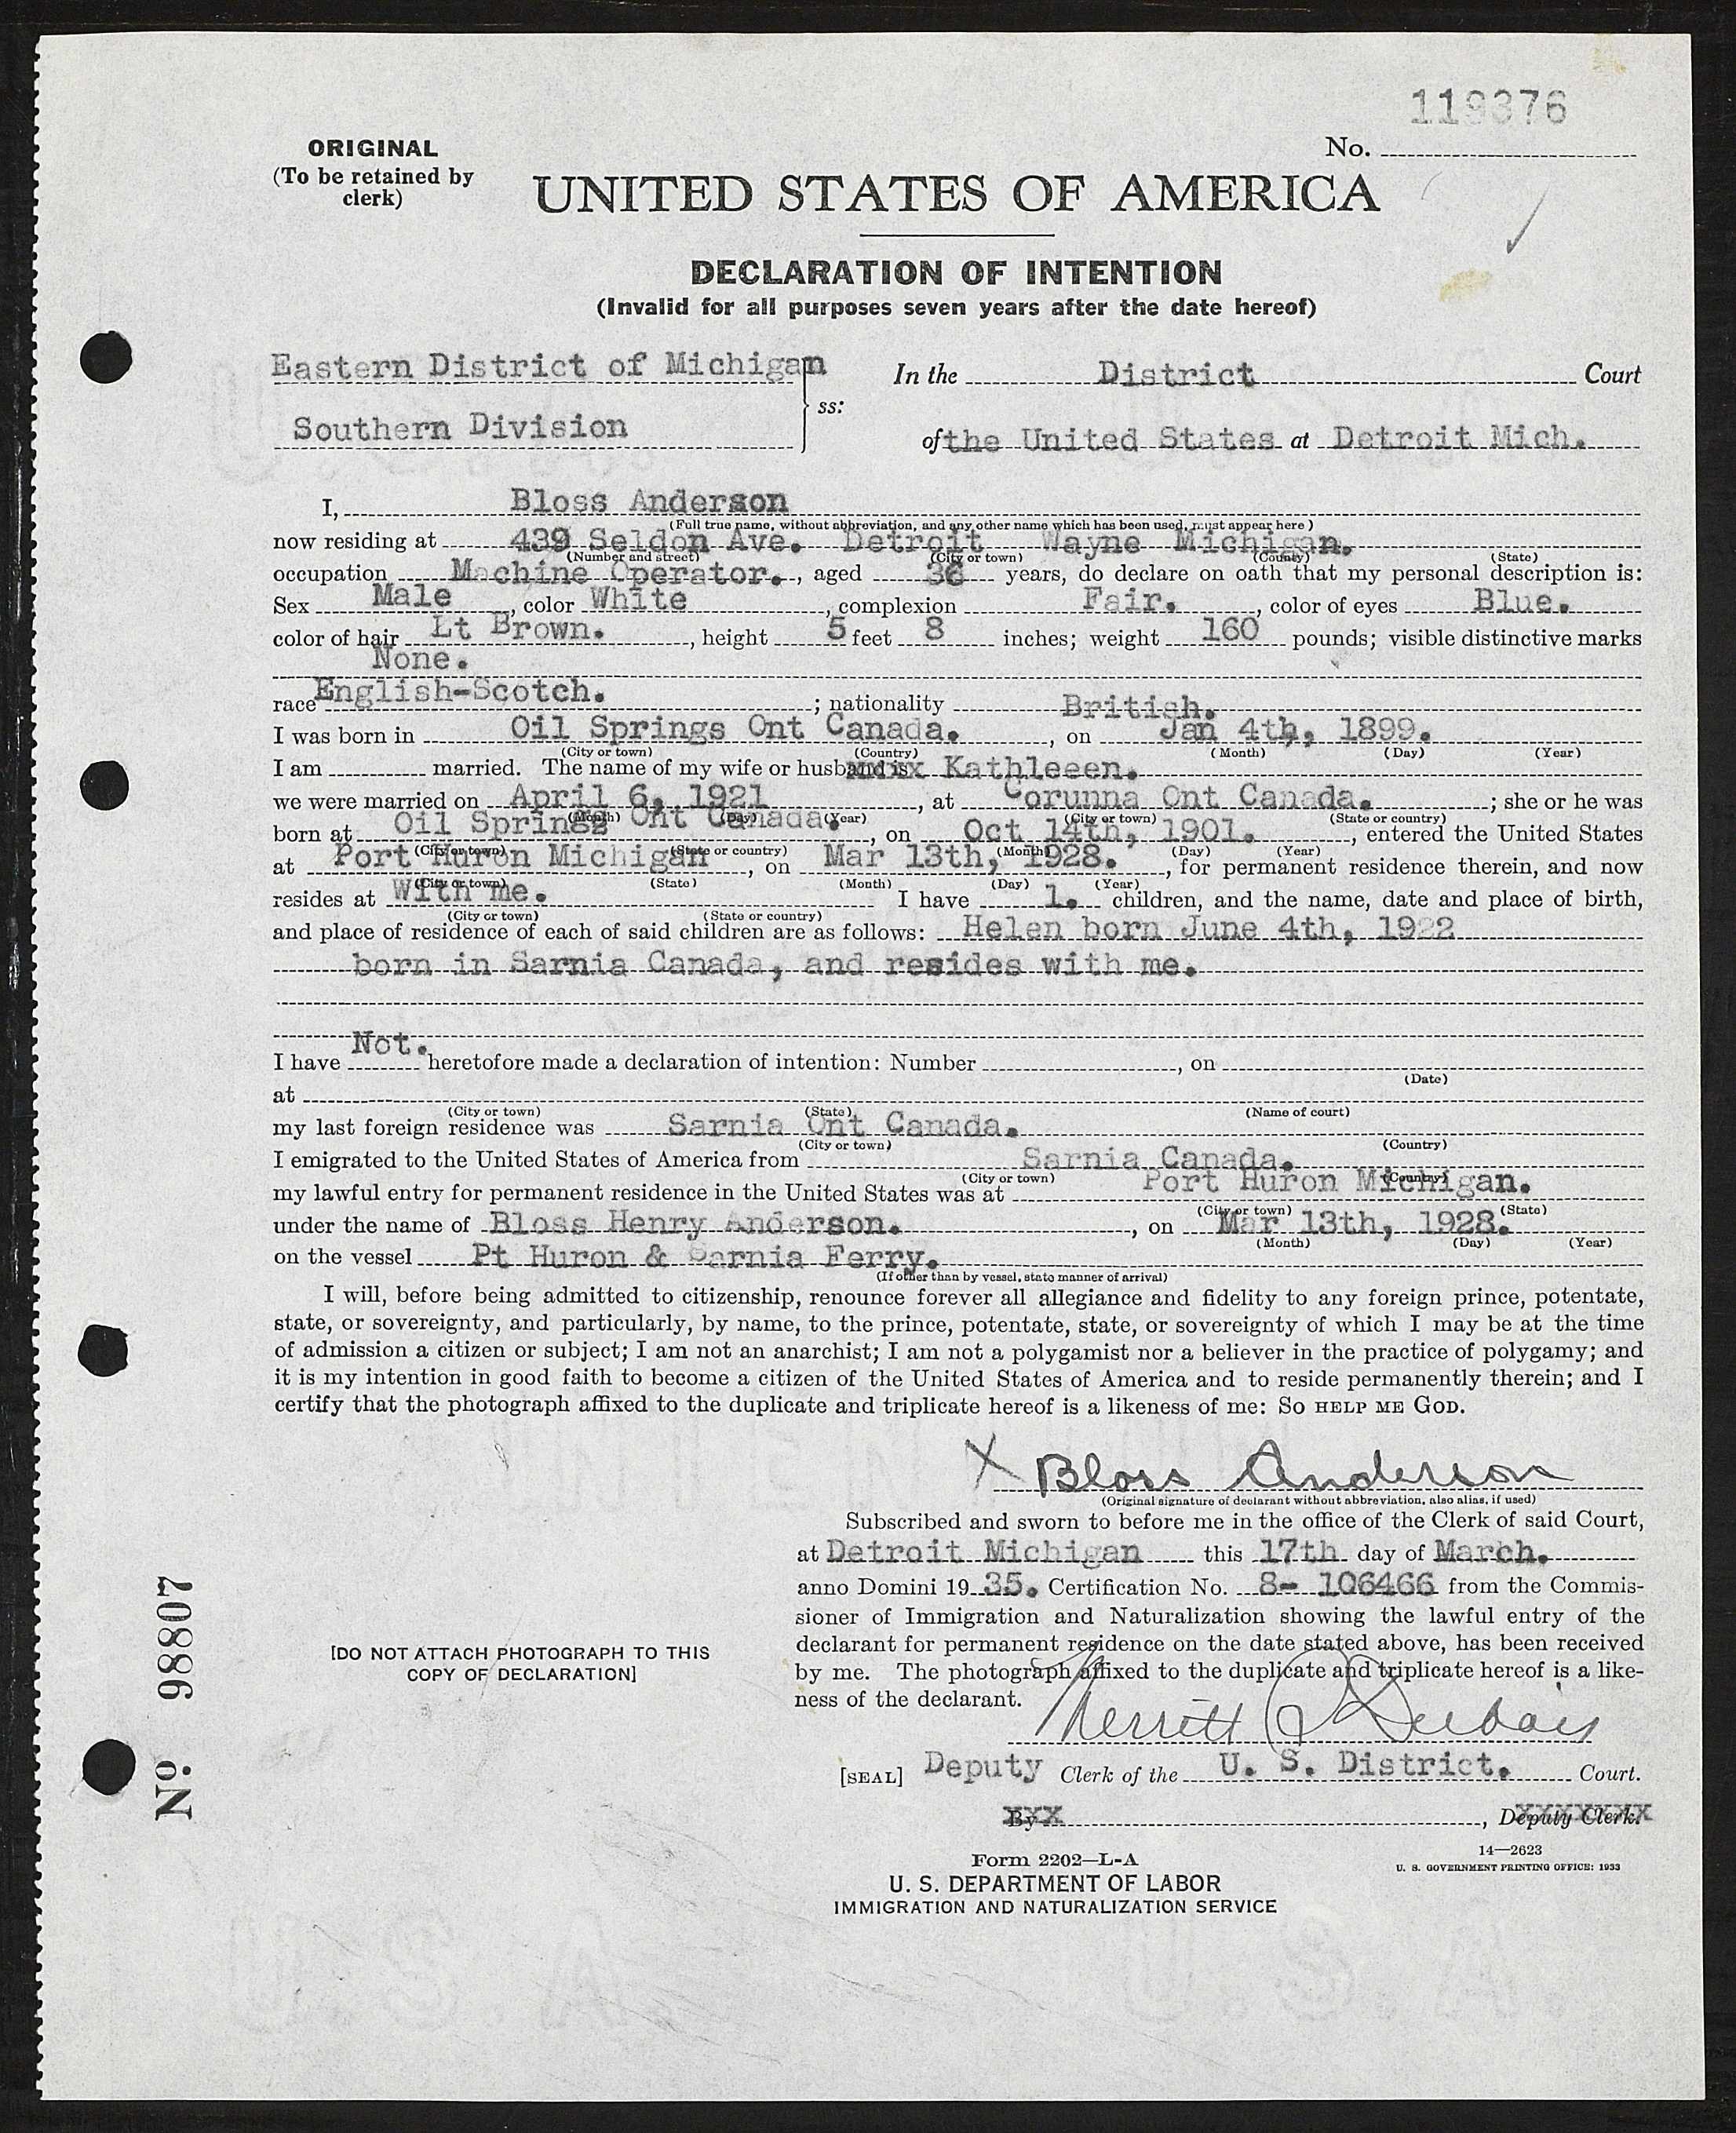 119376
ORIGINAL
(To be retained by
clerk)
No.
UNITED STATES OF AMERICA
DECLARATION OF INTENTION
(Invalid for all purposes seven years after the date hereof)
Eastern District of Michigan
Southern Division
ss:
In the District Court
of the United States at Detroit Mich.
I, Bloss Anderson
(Full true name, without abbreviation, and any other name which has been used, must appear here)
now residing at 439 Seldon Ave. Detroit Wayne Michigan.
(Number and street) (City or town) (County) (State)
occupation Machine Operator., aged 36 years, do declare on oath that my personal description is:
Sex Male, color White, complexion Fair., color of eyes Blue.
color of hair Lt Brown., height 5 feet 8 inches; weight 160 pounds; visible distinctive marks
None.
race English-Scotch.; nationality British.
I was born in Oil Springs Ont Canada., on Jan 4th, 1899.
(City or town) (Country) (Month) (Day) (Year)
I am married. The name of my wife or husband is Kathleeen.
we were married on April 6, 1921, at Corunna Ont Canada.; she or he was
(Month) (Day) (Year) (City or town) (State or country)
born at Oil Springs Ont Canada., on Oct 14th, 1901., entered the United States
(City or town) (State or country) (Month) (Day) (Year)
at Port Huron Michigan, on Mar 13th, 1928., for permanent residence therein, and now
(City or town) (State) (Month) (Day) (Year)
resides at With me. I have 1. children, and the name, date and place of birth,
(City or town) (State or country)
and place of residence of each of said children are as follows: Helen born June 4th, 1922
born in Sarnia Canada, and resides with me.
I have Not. heretofore made a declaration of intention: Number, on
(Date)
at
(City or town) (State) (Name of court)
my last foreign residence was Sarnia Ont Canada.
(City or town) (Country)
I emigrated to the United States of America from Sarnia Canada.
(City or town) (Country)
my lawful entry for permanent residence in the United States was at Port Huron Michigan.
(City or town) (State)
under the name of Bloss Henry Anderson., on Mar 13th, 1928.
(Month) (Day) (Year)
on the vessel Pt Huron & Sarnia Ferry.
(If other than by vessel, state manner of arrival)
I will, before being admitted to citizenship, renounce forever all allegiance and fidelity to any foreign prince, potentate,
state, or sovereignty, and particularly, by name, to the prince, potentate, state, or sovereignty of which I may be at the time
of admission a citizen or subject; I am not an anarchist; I am not a polygamist nor a believer in the practice of polygamy; and
it is my intention in good faith to become a citizen of the United States of America and to reside permanently therein; and I
certify that the photograph affixed to the duplicate and triplicate hereof is a likeness of me: SO HELP ME GOD.
X Bloss Anderson
(Original signature of declarant without abbreviation, also alias, if used)
Subscribed and sworn to before me in the office of the Clerk of said Court,
at Detroit Michigan this 17th day of March.
anno Domini 19 35. Certification No. 8- 106466 from the Commis-
sioner of Immigration and Naturalization showing the lawful entry of the
declarant for permanent residence on the date stated above, has been received
by me. The photograph affixed to the duplicate and triplicate hereof is a like-
ness of the declarant.
Merritt
[SEAL] Deputy Clerk of the U. S. District. Court.
By, Deputy Clerk.
[DO NOT ATTACH PHOTOGRAPH TO THIS
COPY OF DECLARATION]
No. 98807
Form 2202—L-A
U. S. DEPARTMENT OF LABOR
IMMIGRATION AND NATURALIZATION SERVICE
14—2623
U. S. GOVERNMENT PRINTING OFFICE: 1933